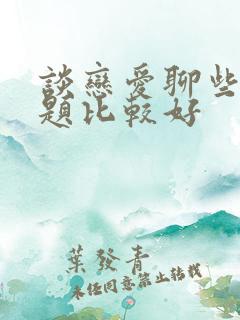 談戀愛聊些
題比較好
葉發青
未經同意禁止轉載